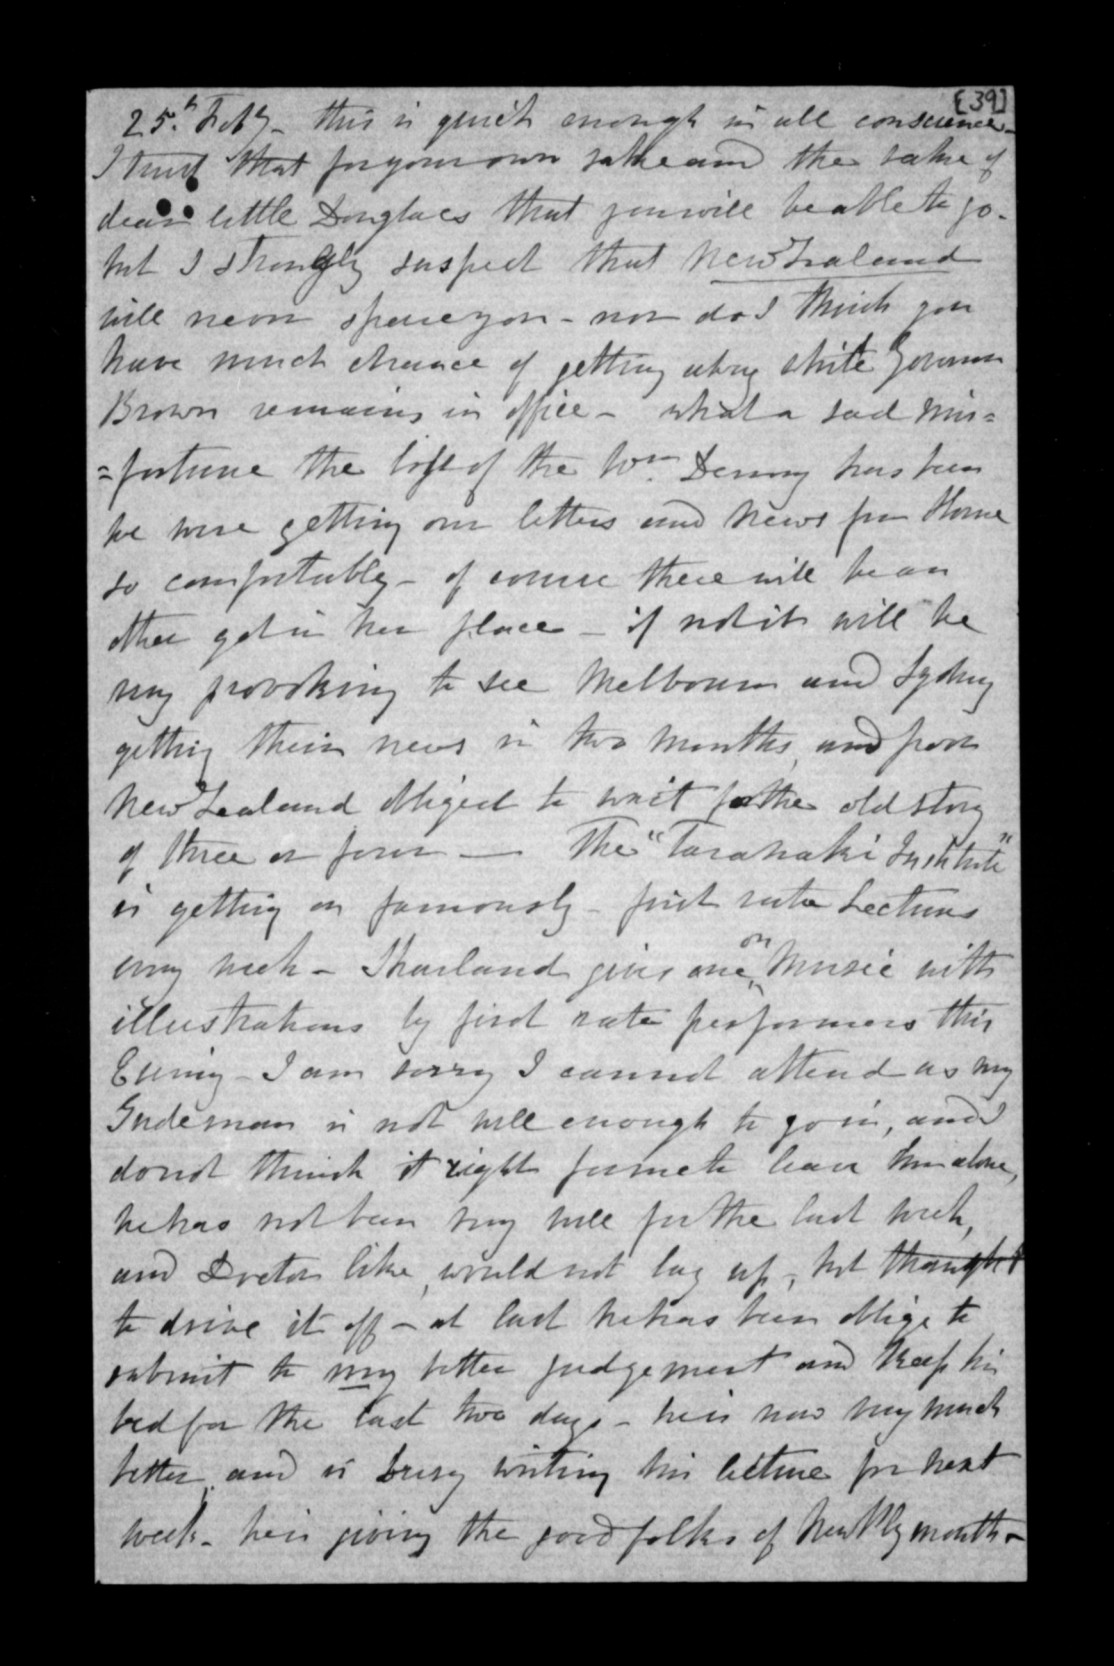 [39]
25.th Feby - this is quick enough in all conscience -
I trust that for your own sake and the sake of
dear little Douglas that you will be able to go -
but I strongly suspect that New Zealand
will never spare you - nor do I think you
have much chance of getting away while Governor
Brown remains in office - what a sad mis=
=fortune the loss of the Wm. Denny has been
we were getting our letters and news from Home
so comfortably - of course there will be an
other got in her place - if not it will be
very provoking to see Melbourne and Sydney
getting their news in two months, and poor
New Zealand obliged to wait for the old story
of three or four — The "Taranaki Institute"
is getting on famously - first rate Lectures
every week - Thurland gives one on Music with
illustrations by first rate performers this
Evening - I am sorry I cannot attend as my
Gudeman is not well enough to go in, and I
do not think it right for me to leave him alone,
he has not been very well for the last week,
and Doctor like, would not lay up, but thought
to drive it off - at last he has been oblige to
submit to my better judgement and keep his
bed for the last two days - he is now very much
better, and is busy writing his lecture for next
week - he is giving the good folks of New Plymouth -